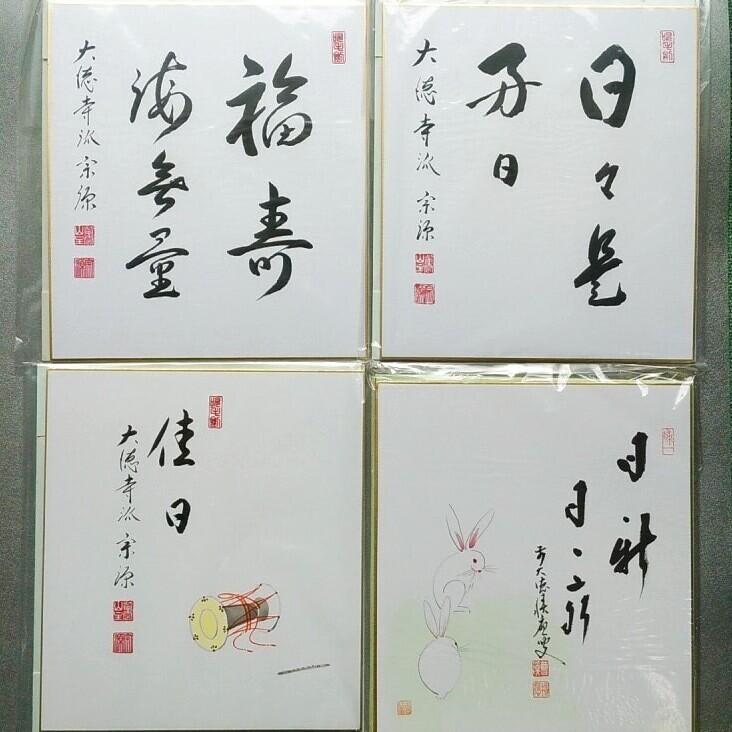 福寿
海無量
大徳寺派宗源
日々是
好日
大徳寺派宗源
佳日
大徳寺派宗源
日新
日々新
前大徳